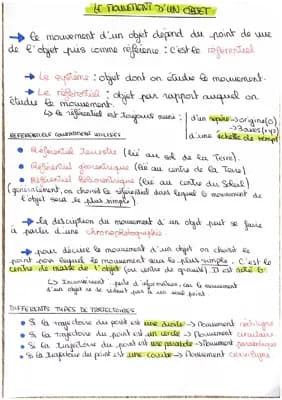 LE MOUVEMENT D'UN OBJET
→ le mouvement d'un objet dépend du point de vue
de l'objet pris comme référence : c'est le référentiel
→ Le système : objet dont on étudie le mouvement.
→ Le référentiel : objet par rapport auquel on
étudie le mouvement.
↳ le référentiel est toujours muni : d'un repère → origine (O)
→ 3 axes (x,y,z)
d'une échelle de temps
REFERENTIELS COURAMMENT UTILISES :
• Référentiel terrestre (lié au sol de la Terre).
• Référentiel géocentrique (lié au centre de la Terre)
• Référentiel héliocentrique (lié au centre du Soleil)
(généralement, on choisit le référentiel dans lequel le mouvement de
l'objet sera le plus simple).
→ la description du mouvement d'un objet peut se faire
à partir d'une chronophotographie.
→ pour décrire le mouvement d'un objet on choisit le
point pour lequel le mouvement sera le plus simple. C'est le
centre de masse de l'objet (ou centre de gravité). Il est noté G
↳ Inconvénient : perte d'informations, car le mouvement
d'un objet ne se réduit pas à un seul point
DIFFERENTS TYPES DE TRAJECTOIRES :
• Si la trajectoire du point est une droite → Mouvement rectiligne
• Si la trajectoire du point est un cercle → Mouvement circulaire
• Si la trajectoire du point est une parabole → Mouvement parabolique
• Si la trajectoire du point est une courbe → Mouvement curviligne